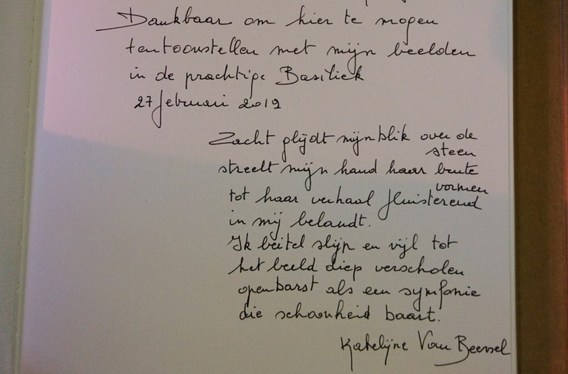 Dankbaar om hier te mogen
tentoonstellen met mijn beelden
in de prachtige Basiliek
27 februari 2019
Zacht glijdt mijn blik over de
steen
streelt mijn hand haar
vormen
tot haar verhaal fluisterend
in mij belandt.
Ik beitel slijp en vijl tot
het beeld diep verscholen
openbarst als een symfonie
die schoonheid baart.
Katelijne Van